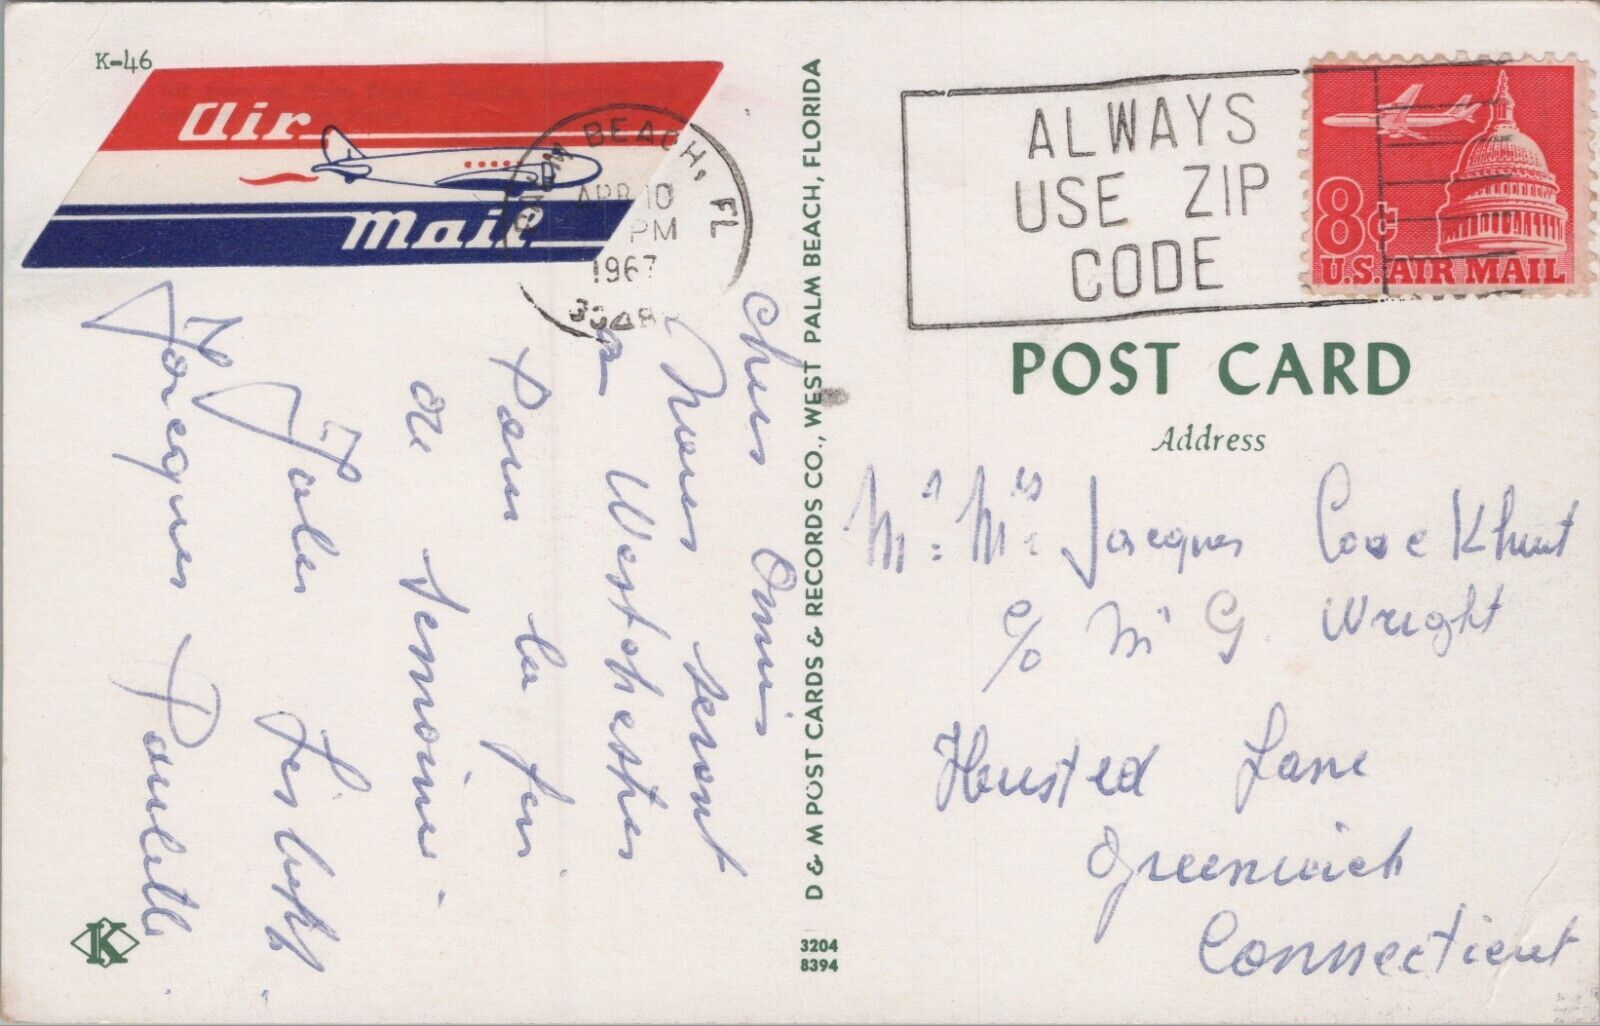 K-46
Air
Mail
BEACH, FL
APR 10
PM
1967
ALWAYS
USE ZIP
CODE
8¢
U.S. AIR MAIL
POST CARD
Address
Mr. Mrs Jacques
c/o Mr G. Wright
Husted Lane
Greenwich
Connecticut
chers Amis
Nous serons
a Westchester
Pour la fin
de semaine
Jacques Paulette
D & M POST CARDS & RECORDS CO., WEST PALM BEACH, FLORIDA
K
3204
8394